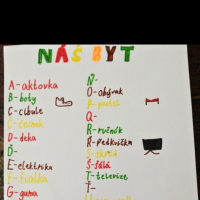 NÁŠ BYT
A - aktovka
B - boty
C - cibule
Č - česnek
D - deka
Ď -
E - elektrika
F - fialka
G - guma
Ň -
O - obývák
P -
Q -
R - ručník
Ř - ředkvička
S -
Š - šála
T - televize
Ť -